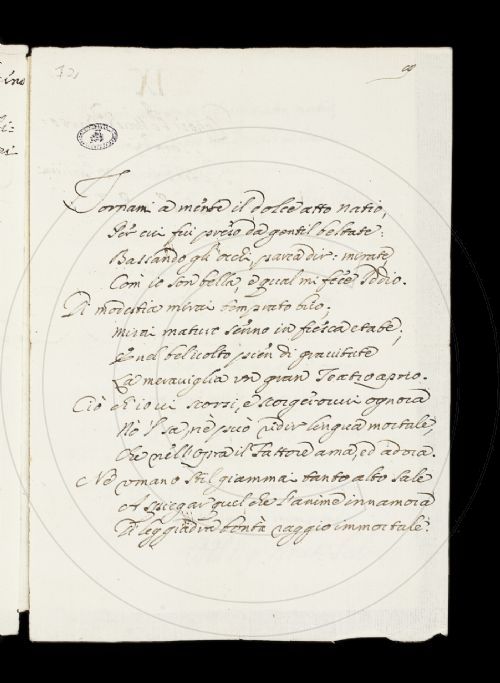 8
Tornami a mente il dolce atto natio,
Per cui fui preso da gentil beltate:
Bassando gli occhi, parea dir: mirate
Com' io son bella, e qual mi fece Iddio.
Di modestia mirai temprato brio;
Mirai maturo senno in fresca etade;
E nel bel volto pien di gravitate
La meraviglia un gran Teatro aprio.
Ciò ch' io vi scorsi, e scorgerovvi ognora
Nò 'l sa, nè può ridir lingua mortale,
Che nell' Opra il Fattore ama, ed adora.
Nè umano stil giammai tanto alto sale
A spiegar quel che l' anime innamora
Di leggiadra bontà raggio immortale.